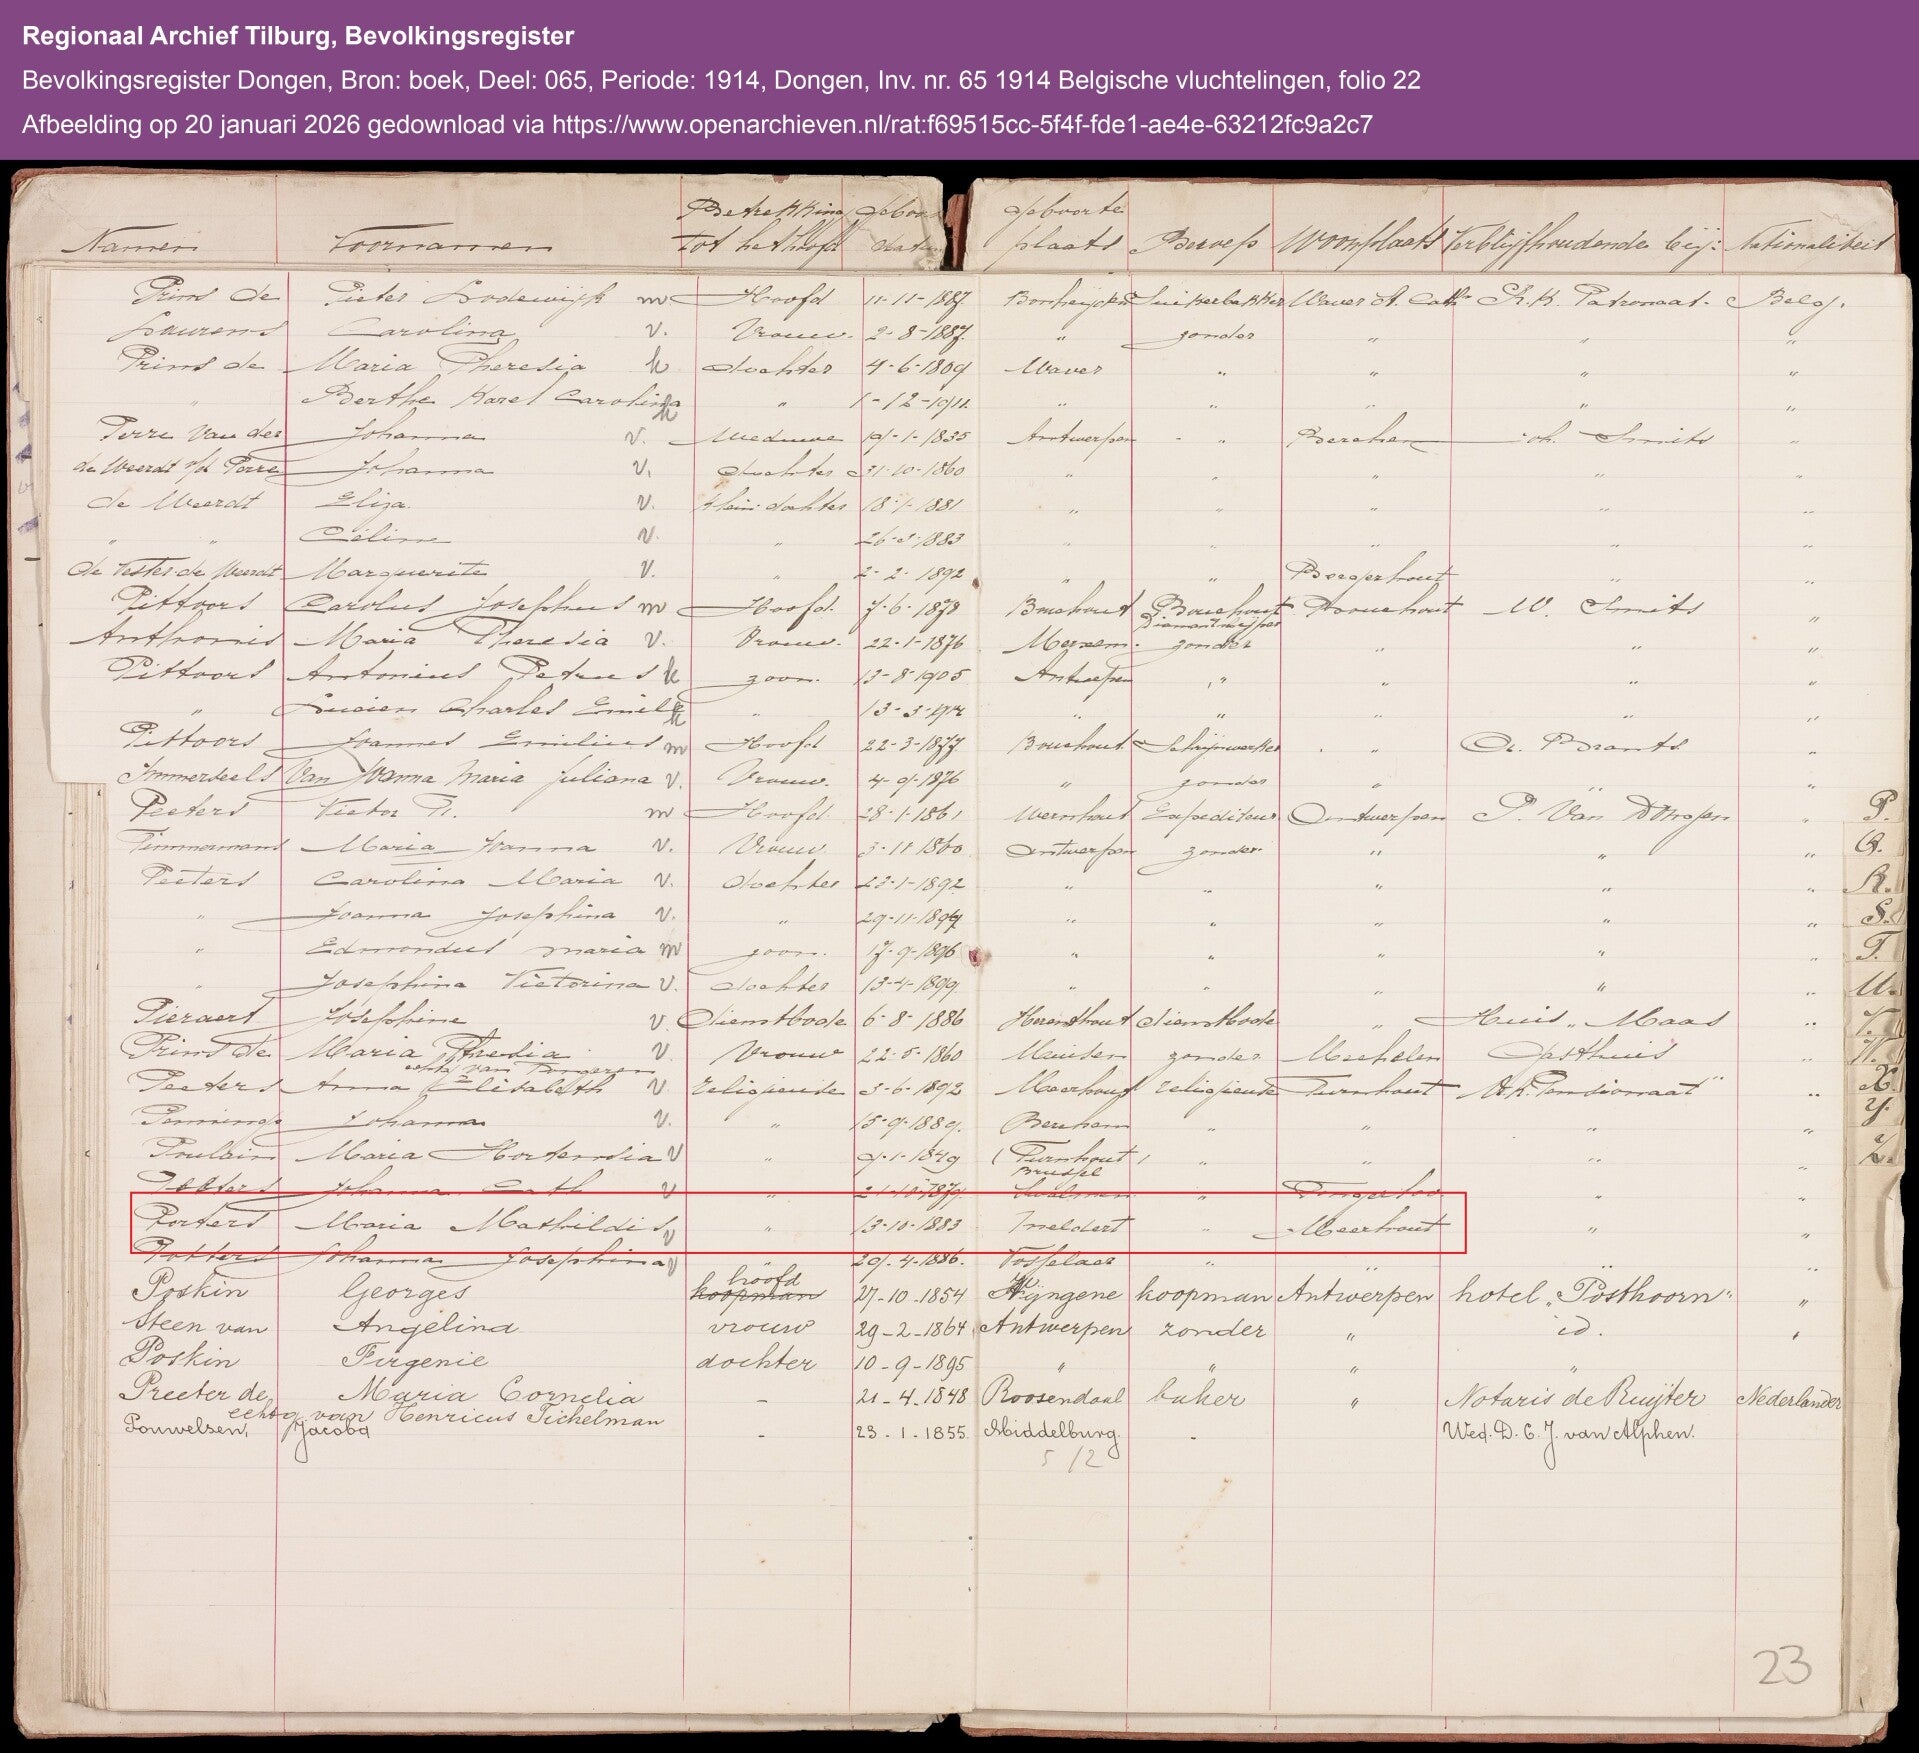 Regionaal Archief Tilburg, Bevolkingsregister
Bevolkingsregister Dongen, Bron: boek, Deel: 065, Periode: 1914, Dongen, Inv. nr. 65 1914 Belgische vluchtelingen, folio 22
Afbeelding op 20 januari 2026 gedownload via https://www.openarchieven.nl/rat:f69515cc-5f4f-fde1-ae4e-63212fc9a2c7
Namen Voornamen Betrekking tot het hoofd Geboorte plaats Beroep Woonplaats Verblijfhoudende bij: Nationaliteit
Prins de Pieter Lodewijk m Hoofd 11-11-1887 Suikerbakker Waver St. Cath. R.K. Patronaat. Belg.
Laurens Carolina v. Vrouw. 2-8-1887. " zonder " " "
Prins de Maria Theresia k dochter 4-6-1809 Waver " " " "
" Berthe Karel Carolina k " 1-12-1911 " " " " "
Perre van der Johanna v. Weduwe 19-1-1835 Antwerpen - " Berchem Joh. Smits "
de Weerdt v/d Perre Johanna v. dochter 31-10-1860 " " " " "
de Weerdt Eliza. v. klein dochter 18-1-1881 " " " " "
" " Céline v. " 26-5-1883 " " " " "
de Weerdt Marguerite v. " 2-2-1892 " " Borgerhout " "
Pittoors Carolus Josephus m Hoofd. 7-6-1878 Bouchout Bouchout Diamantslijper Bouchout W. Smits "
Anthonis Maria Theresia v. Vrouw. 22-1-1876 Merxem. zonder " " "
Pittoors Antonius Petrus k zoon. 13-8-1905 Antwerpen " " " "
" Lucien Charles Emile k " " " " " "
Pittoors Joannes Emilius m Hoofd 22-3-1877 Bouchout Schrijnwerker " "
Immerseels Van Joanna Maria Juliana v. Vrouw. 4-9-1876 " zonder " " "
Peeters Victor m Hoofd. 28-1-1861 Expediteur Antwerpen P. Van Dongen " P.
Timmermans Maria Joanna v. Vrouw 3-11-1860 Antwerpen zonder " " " Q.
Peeters Carolina Maria v. dochter 23-1-1892 " " " " " R.
" Joanna Josephina v. " " " " " " S.
" Edmondus maria m zoon. 17-9-1896 " " " " " T.
" Josephina Victorina v. dochter 13-4-1899 " " " " " U.
Pieraert Josephine v dienstbode 6-8-1886 Herenthout dienstbode " Huis " Maas " V.
Prins de Maria Thresia v Vrouw 22-5-1860 zonder Mechelen Gasthuis "
echtg. van Tongeren
Peeters Anna Elisabeth v religieuse 3-6-1892 Meerhout religieuse Turnhout R.K. Pensionaat " X.
Pennings Johanna v. " 15-9-1889. Berchem " " " " Y.
Poulain Maria Hortensia v " 9-1-1849 ( Turnhout ) Brussel " " " " Z.
Johanna Cath v " 21-10-1879. " Tongerloo " "
Porters Maria Mathildis v " 13-10-1883 Meldert " Meerhout " "
Potters Johanna Josephina v " 29.4-1886. Vosselaer " " " "
Poskin Georges hoofd koopman 27-10-1854 Wijngene koopman Antwerpen hotel "Posthoorn" "
Steen van Angelina vrouw 29-2-1864 Antwerpen zonder " id. "
Poskin Firgenie dochter 10-9-1895 " " " "
Preeter de, Maria Cornelia - 21-4.1848 Roosendaal baker " Notaris de Ruijter Nederlander
echtg van Henricus Tichelman
Pouwelsen, Jacoba - 23.1.1855. Middelburg. - Wed. D. C. J. van Alphen.
5/2
23